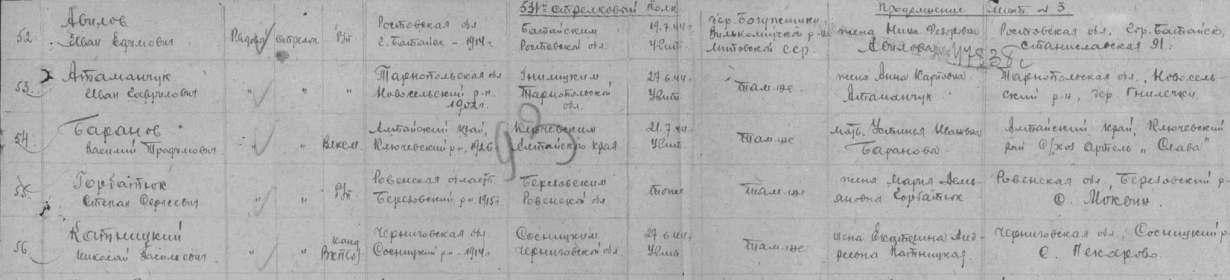 53 Стрелковый полк Продолжение Лист № 3
52 Авилов Иван Ефимович Рядовой стрелок б/п Ростовская обл. г. Батайск - 1914г. Батайским Ростовской обл. 19.7.44г. Убит дер. Вилькомирского р-на Литовской ССР жена Нина Авилова Ростовская обл. гор. Батайск, Станиславская 91.
53 Атаманчук Иван Гаврилович " " Тарнопольская обл. Новосельский р-н 1902г. Гнилицким Тарнопольской обл. 27.6.44г. Убит Там-же жена Анна Карповна Атаманчук Тарнопольская обл., Новосельский р-н, дер. Гнилички
54 Баранов Василий Трофимович " " Влксм. Алтайский край, Ключевский р-н, 1926г. Ключевским Алтайского края 21.7.44г. Убит Там-же мать Устинья Ивановна Баранова Алтайский край, Ключевский с/хоз артель "Слава"
55 Горбатюк Степан Сергеевич " " б/п Ровенская область Березовский р-н 1915г. Березовским Ровенской обл. тоже Там-же жена Мария Демьяновна Горбатюк Ровенская обл., Березовский р-н с.
56 Катницкий Николай Васильевич " " канд ВКП(б) Черниговская обл. Сосницкий р-н - 1914г. Сосницким Черниговской обл. 27.6.44г. Убит Там-же жена Екатерина Андреевна Катницкая Черниговская обл., Сосницкий р-н с. Пекарево